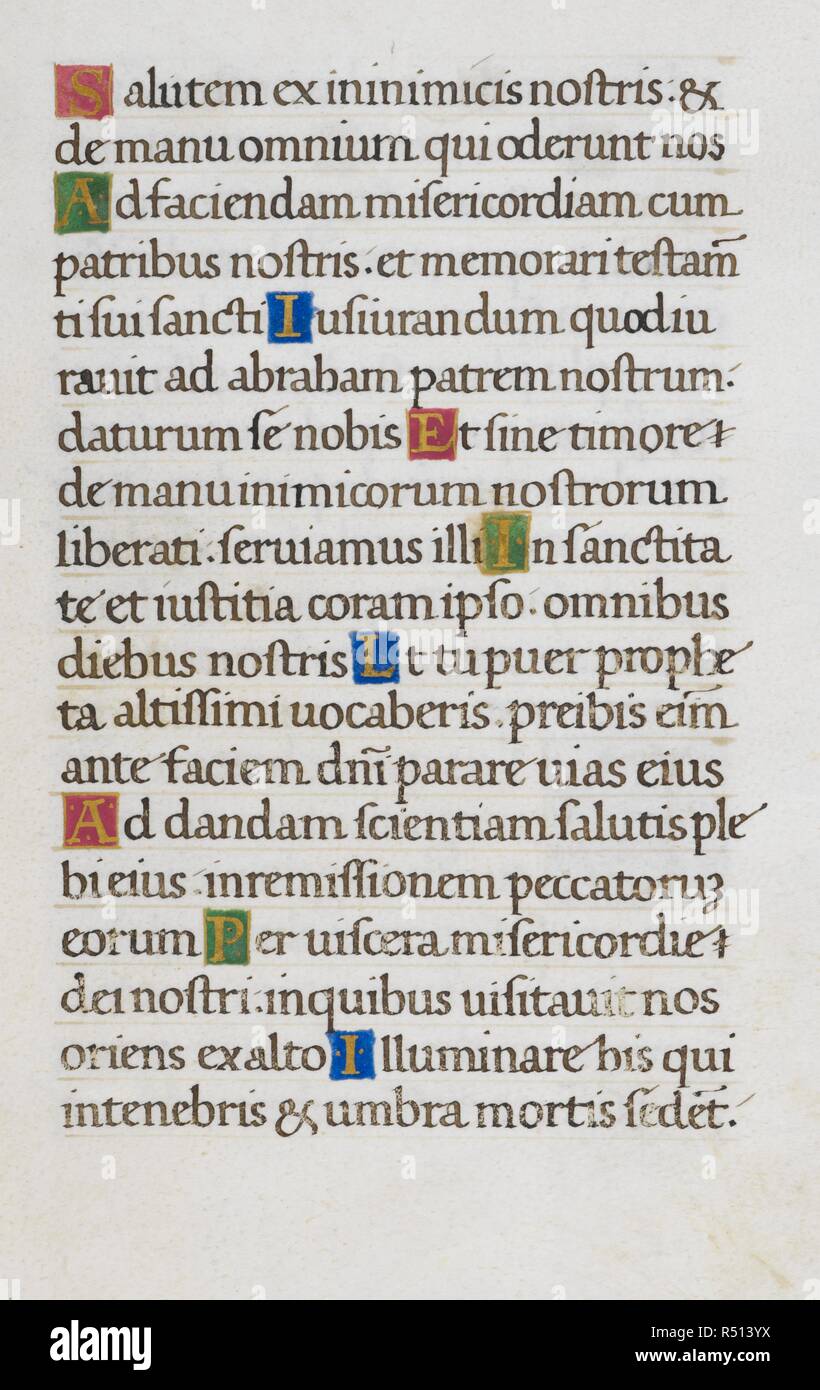 Salutem ex ininimicis nostris. &
de manu omnium qui oderunt nos
Ad faciendam misericordiam cum
patribus nostris. et memorari testam̄
ti sui sancti Iusiurandum quod iu
rauit ad abraham patrem nostrum.
daturum se nobis Et sine timore
de manu inimicorum nostrorum
liberati. seruiamus illi In sanctita
te et iustitia coram ipso. omnibus
diebus nostris Lt tu puer prophe
ta altissimi uocaberis. preibis eim̄
ante faciem dn̄i parare uias eius
Ad dandam scientiam salutis ple
bi eius. in remissionem peccatoruꝫ
eorum Per uiscera misericordie
dei nostri. in quibus uisitauit nos
oriens ex alto Illuminare his qui
in tenebris & umbra mortis sedēt.
alamy
Image ID: R513YX
www.alamy.com